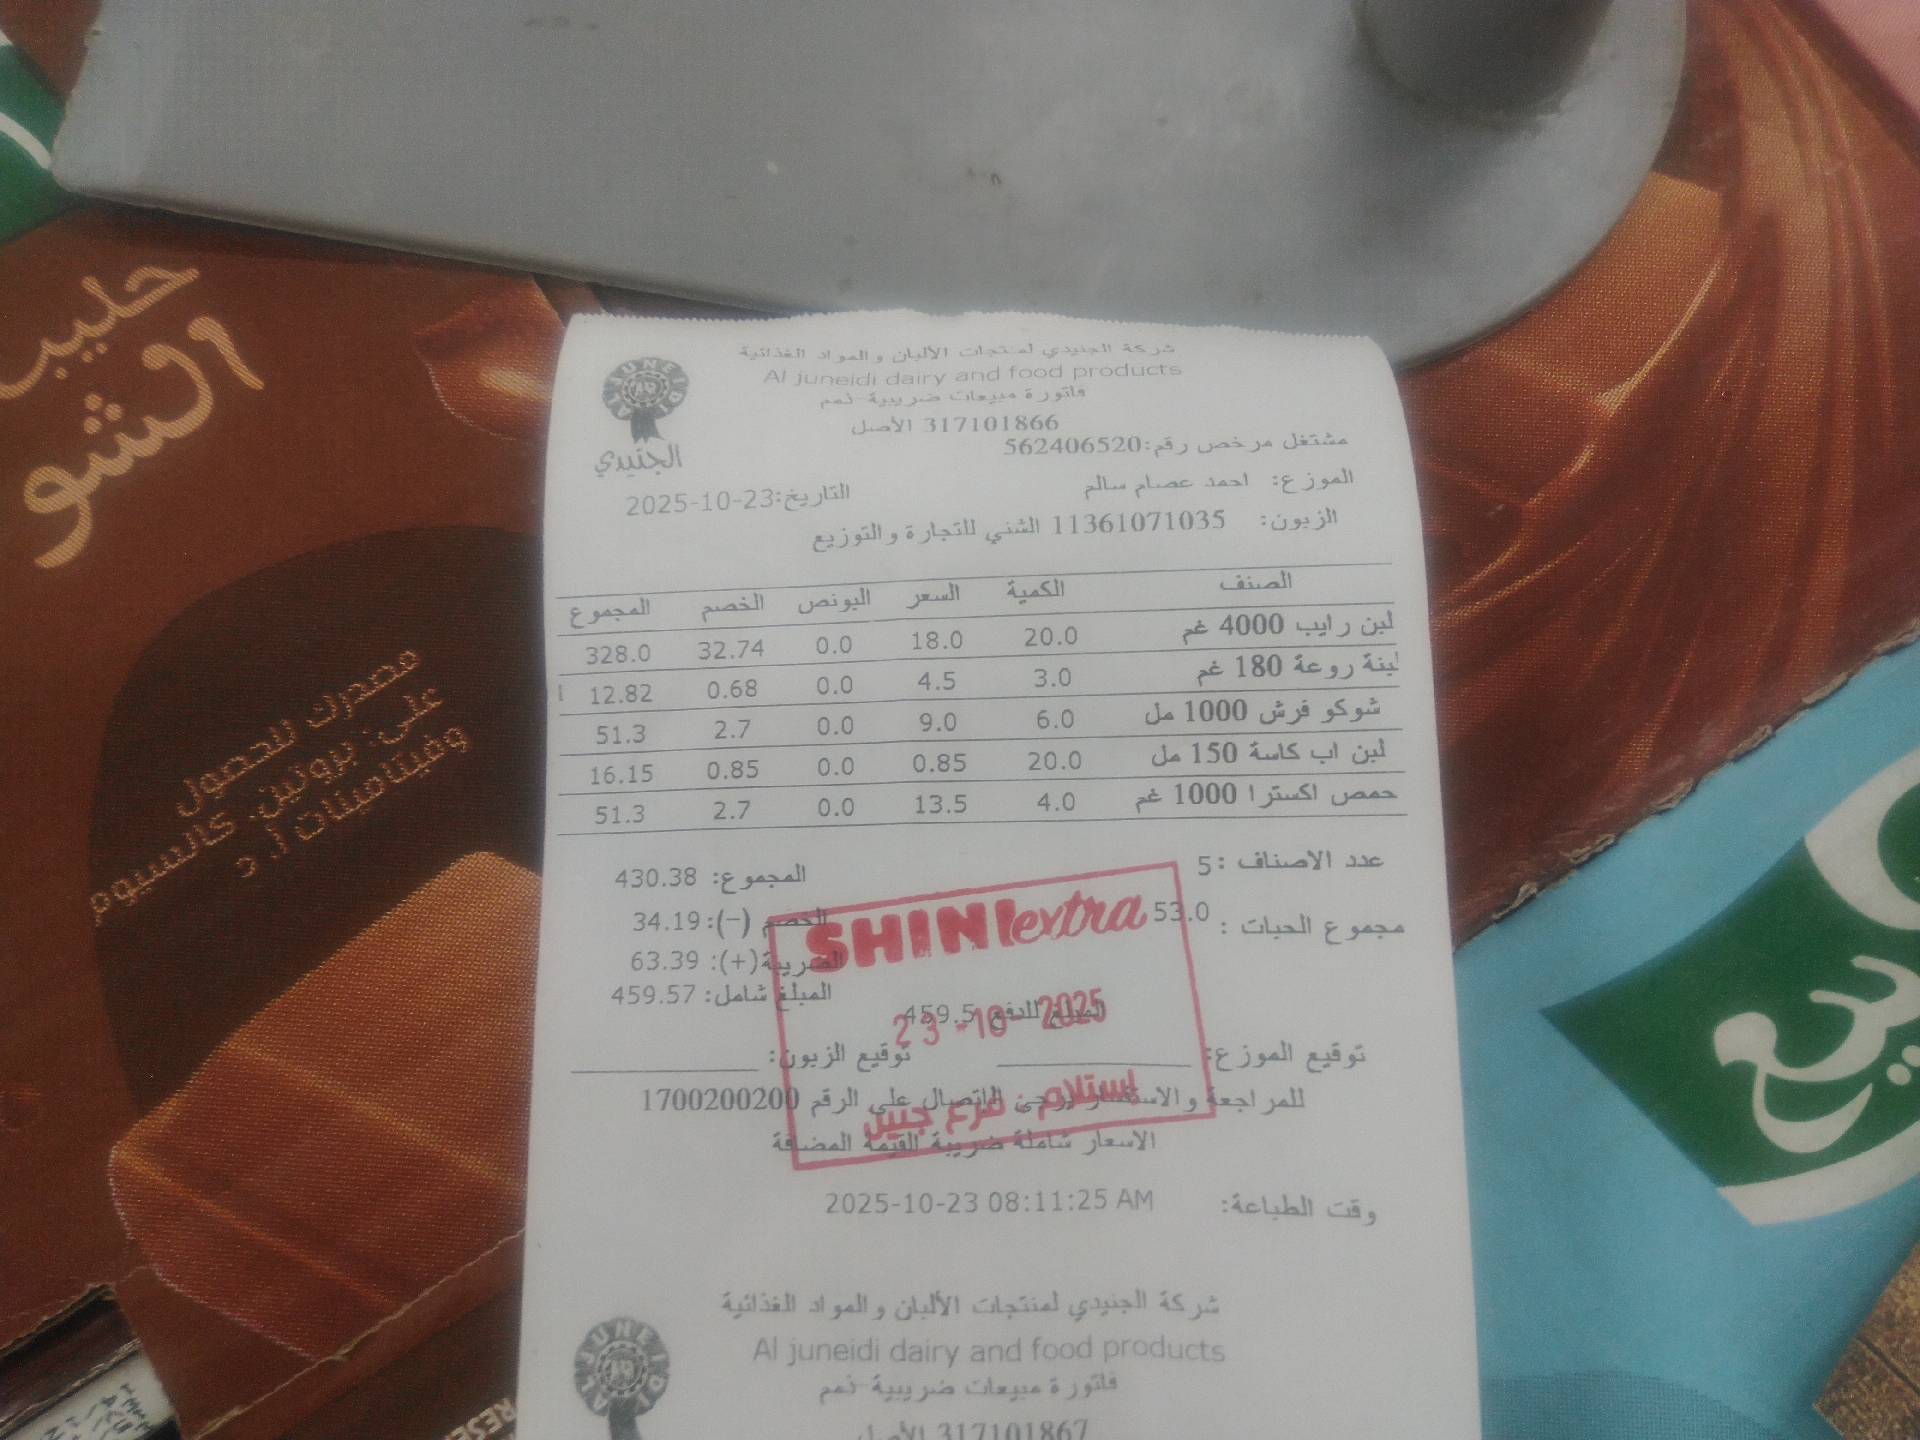 حليب
الشو
مصدرك للحصول
على: بروتين، كالسيوم
وفيتامينات أ، د
AL JUNEIDI
الجنيدي
شركة الجنيدي لمنتجات الألبان والمواد الغذائية
Al juneidi dairy and food products
فاتورة مبيعات ضريبية-ذمم
317101866 الأصل
مشتغل مرخص رقم:562406520
الموزع: احمد عصام سالم
التاريخ:2025-10-23
الزبون: 11361071035 الشني للتجارة والتوزيع
الصنف الكمية السعر البونص الخصم المجموع
لبن رايب 4000 غم 20.0 18.0 0.0 32.74 328.0
لبنة روعة 180 غم 3.0 4.5 0.0 0.68 12.82
شوكو فرش 1000 مل 6.0 9.0 0.0 2.7 51.3
لبن اب كاسة 150 مل 20.0 0.85 0.0 0.85 16.15
حمص اكسترا 1000 غم 4.0 13.5 0.0 2.7 51.3
عدد الاصناف :5 المجموع: 430.38
مجموع الحبات : 53.0 الخصم (-): 34.19
الضريبة(+): 63.39
المبلغ شامل: 459.57
المبلغ للدفع 459.5
SHINI extra
23-10-2025
استلام: فرع جبيل
توقيع الموزع: توقيع الزبون:
للمراجعة والاستفسار يرجى الاتصال على الرقم 1700200200
الاسعار شاملة ضريبة القيمة المضافة
وقت الطباعة: 2025-10-23 08:11:25 AM
شركة الجنيدي لمنتجات الألبان والمواد الغذائية
Al juneidi dairy and food products
فاتورة مبيعات ضريبية-ذمم
317101867 الأصل
AL JUNEIDI